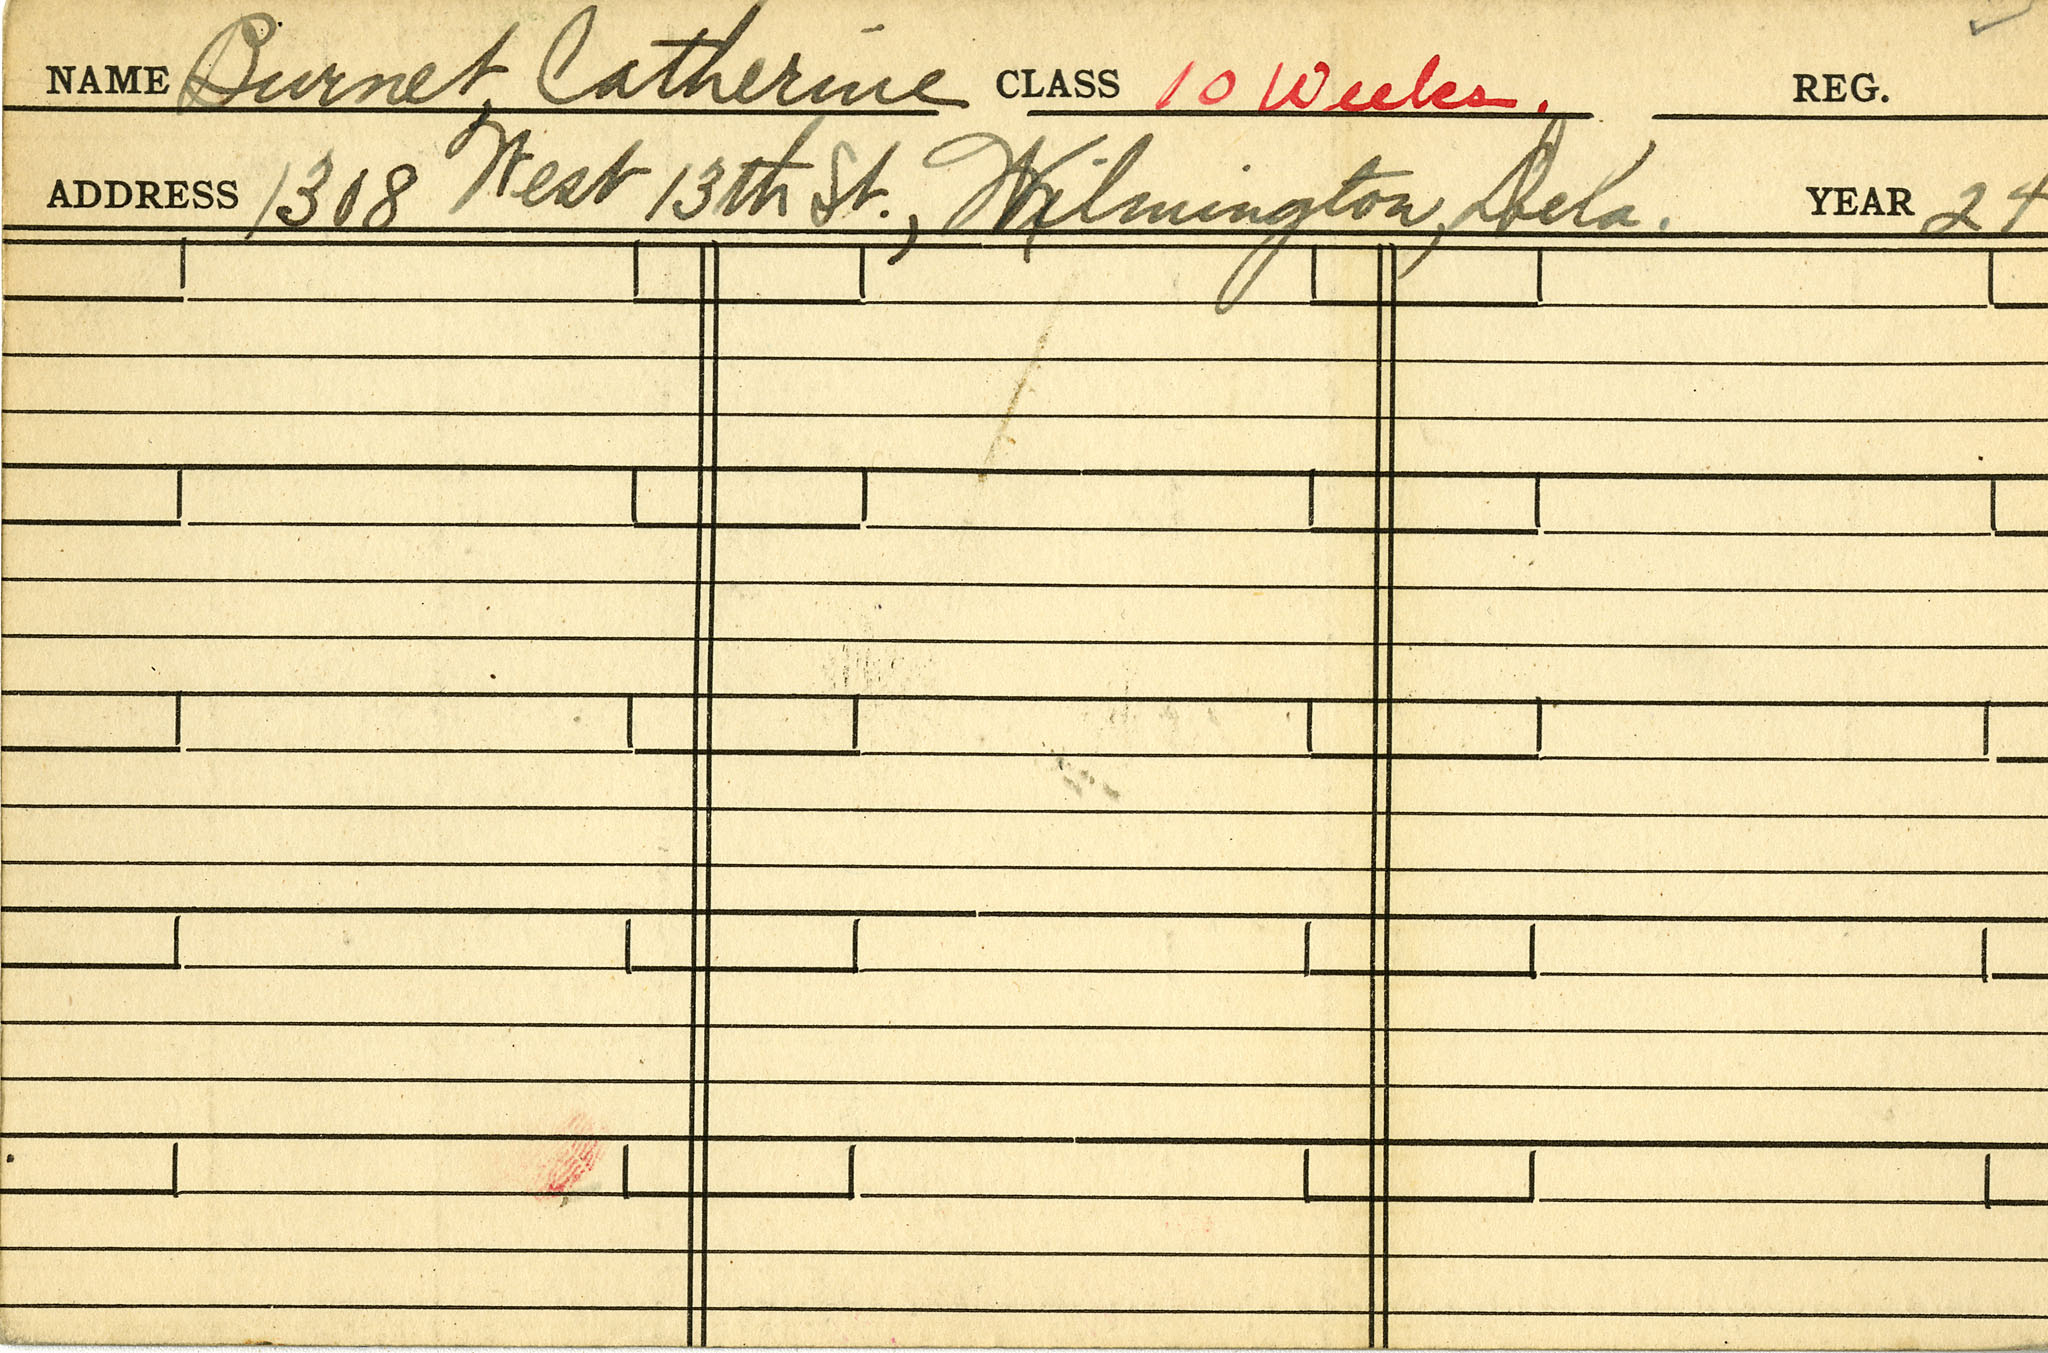 NAME Burnet, Catherine CLASS 10 Weeks. REG.
ADDRESS 1308 West 13th St., Wilmington, Dela. YEAR 24